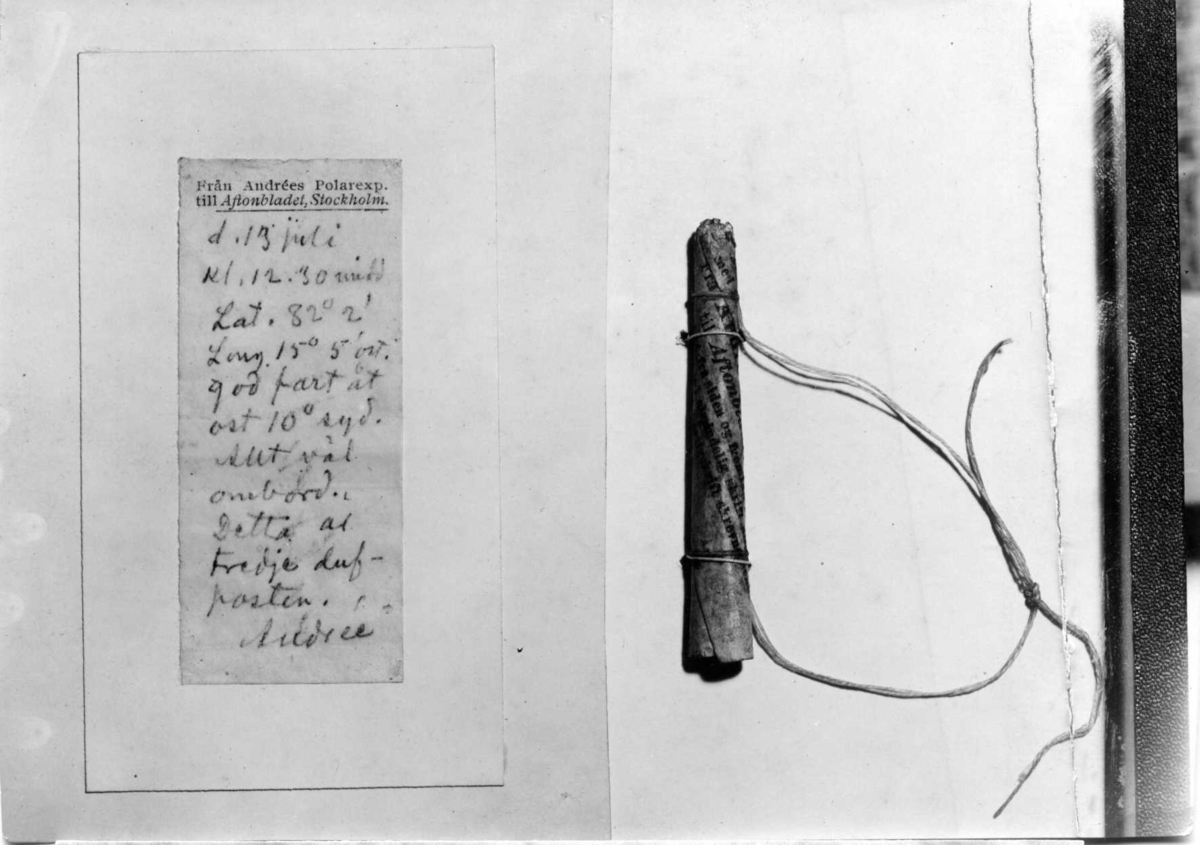 Från Andrées Polarexp.
till Aftonbladet, Stockholm.
d. 13 juli
kl. 12.30 midd
Lat. 82° 2'
Long. 15° 5' ost.
god fart åt
ost 10° syd.
Allt väl
ombord.
Detta är
tredje duf-
posten.
Andrée
med
Från A
till Aftonb